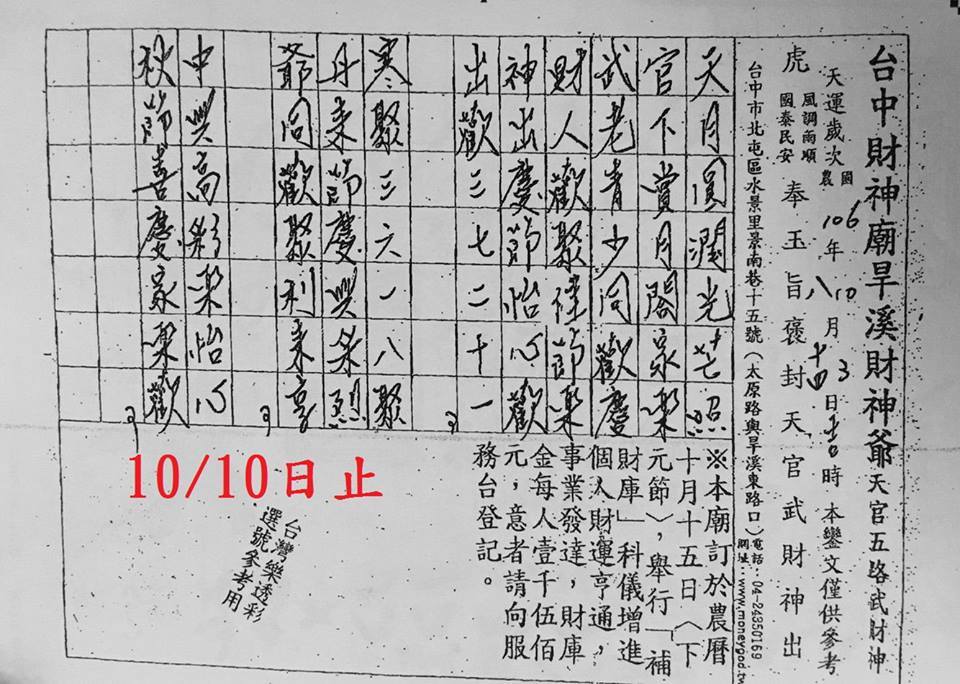 台中財神廟旱溪財神爺天官五路武財神
天運歲次國農106年八10月十四3日吉時本鑾文僅供參考
風調雨順
國泰民安
虎奉玉旨褒封天官武財神出
台中市北屯區水景里景南巷十五號(太原路與旱溪東路口)
電話:04-24350169
網址:www.moneygod.tw
天月圓潤光芒照
官下賞月閤家樂
武老青少同歡慶
財人歡聚佳節樂
神出慶節怡心歡
出歡三七二十一
寒聚三六一八聚
丹來節慶興榮
爺同歡聚利來喜
中興高彩樂怡心
秋節喜慶家樂歡
※本廟訂於農曆
十月十五日〈下
元節〉,舉行「補
財庫」科儀增進
個人財運亨通,
事業發達,財庫
金每人壹千伍佰
元,意者請向服
務台登記。
10/10日止
台灣樂透彩
選號參考用